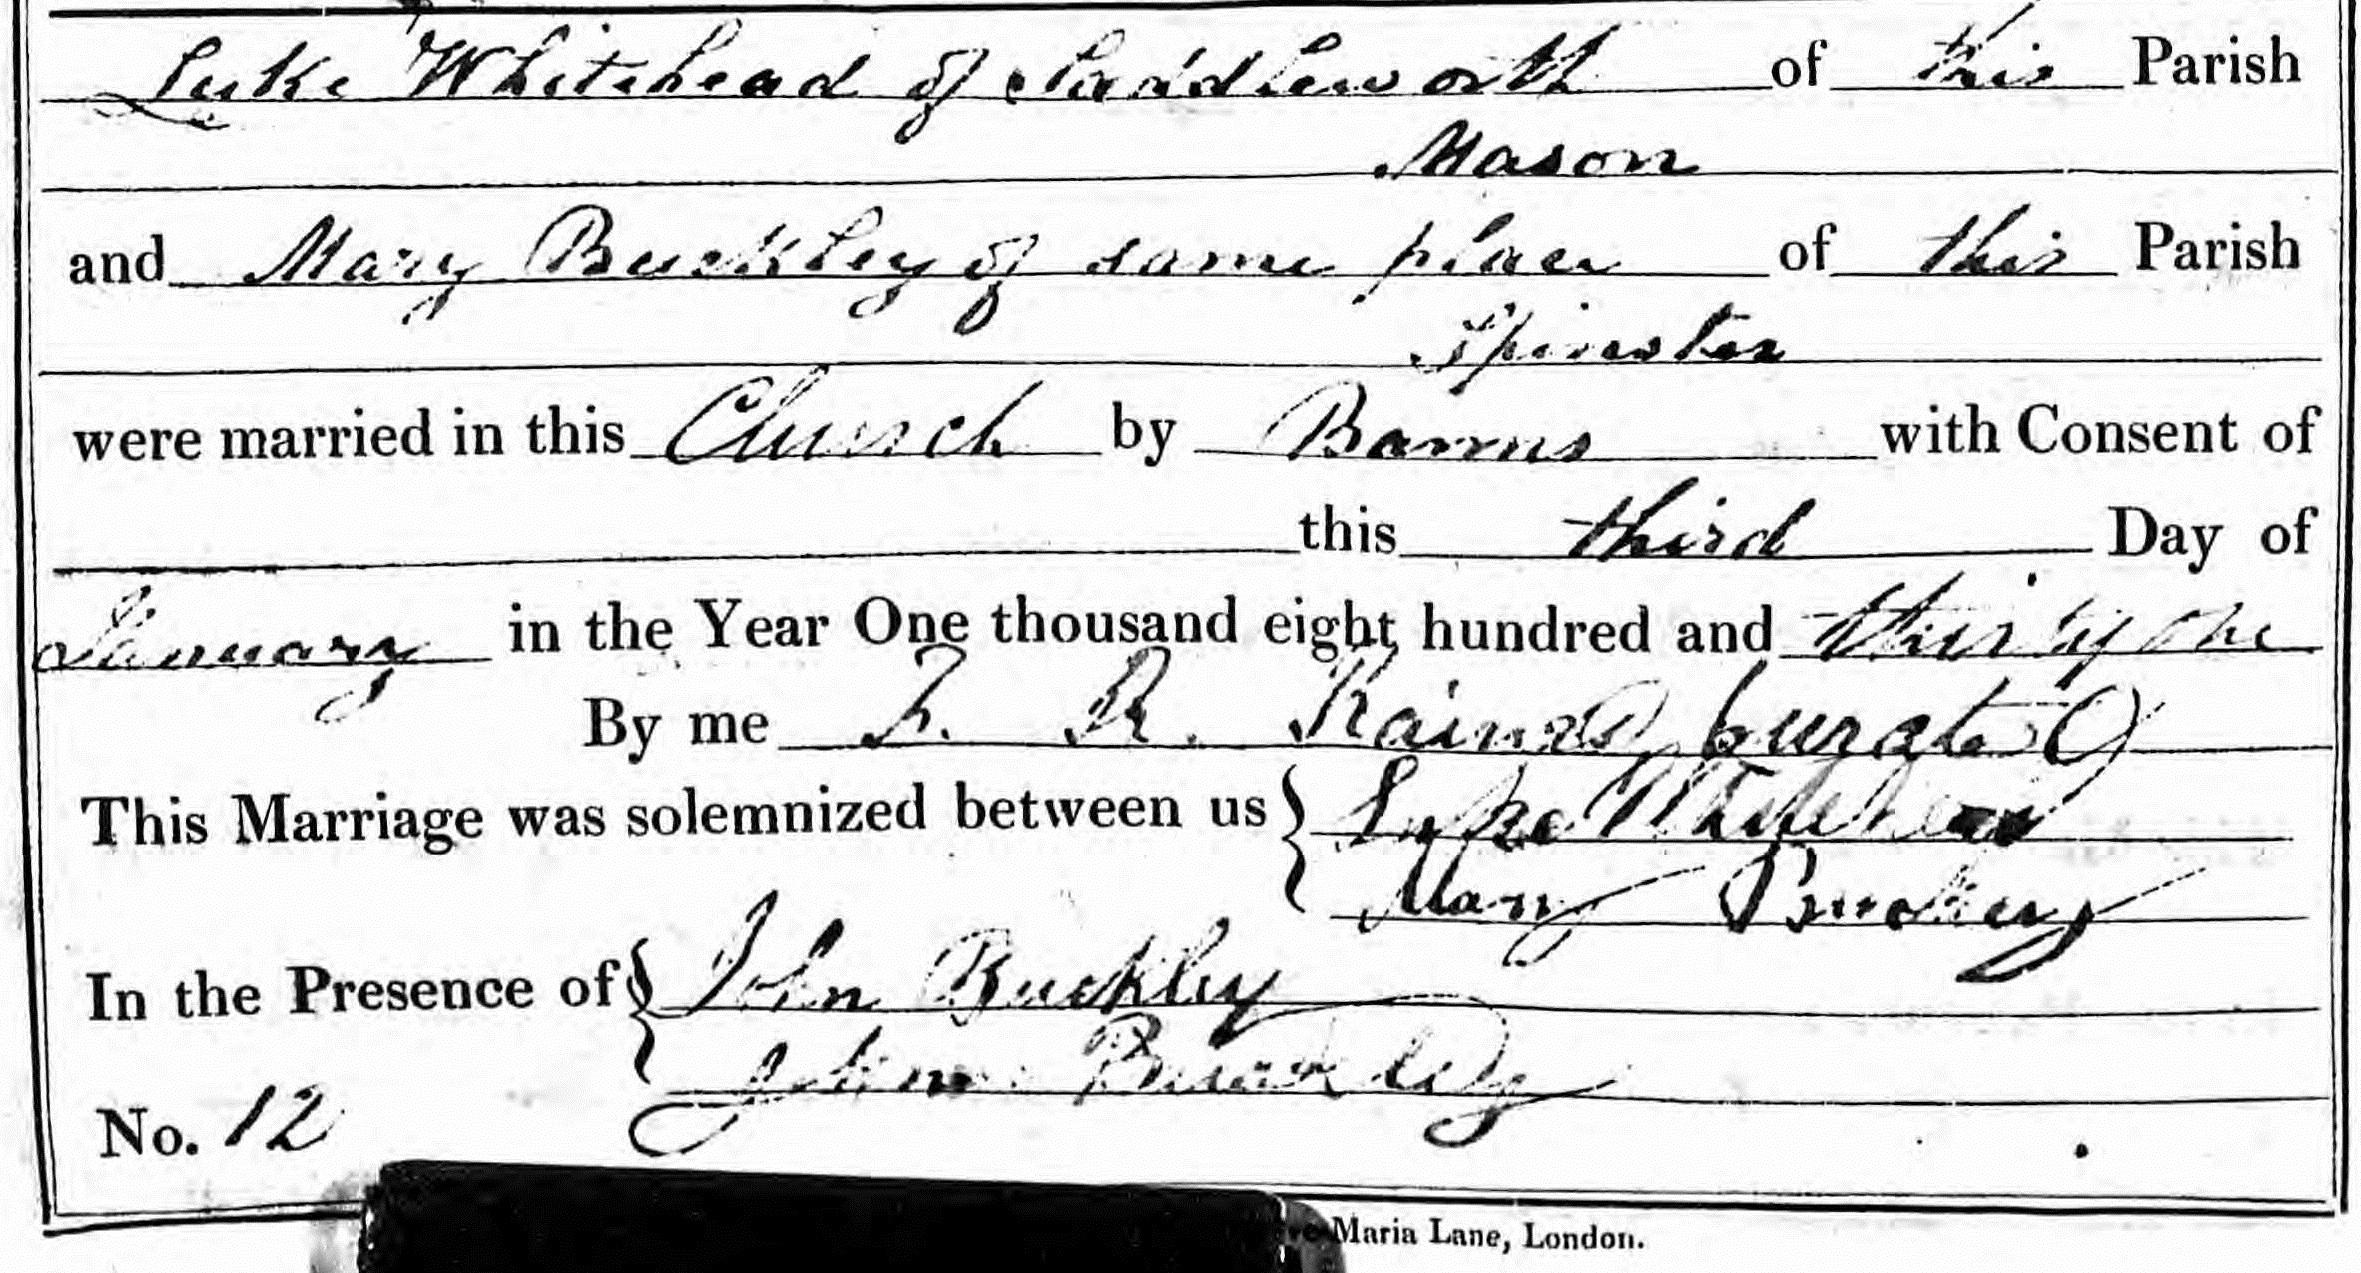 Luke Whitehead of Saddleworth of this Parish
Mason
and Mary Buckley of same place of this Parish
Spinster
were married in this Church by Banns with Consent of
this third Day of
January in the Year One thousand eight hundred and thirty one
By me F. R. Raines, Curate
This Marriage was solemnized between us { Luke Whitehead
Mary Buckley
In the Presence of { John Buckley
Buckley
No. 12
Maria Lane, London.